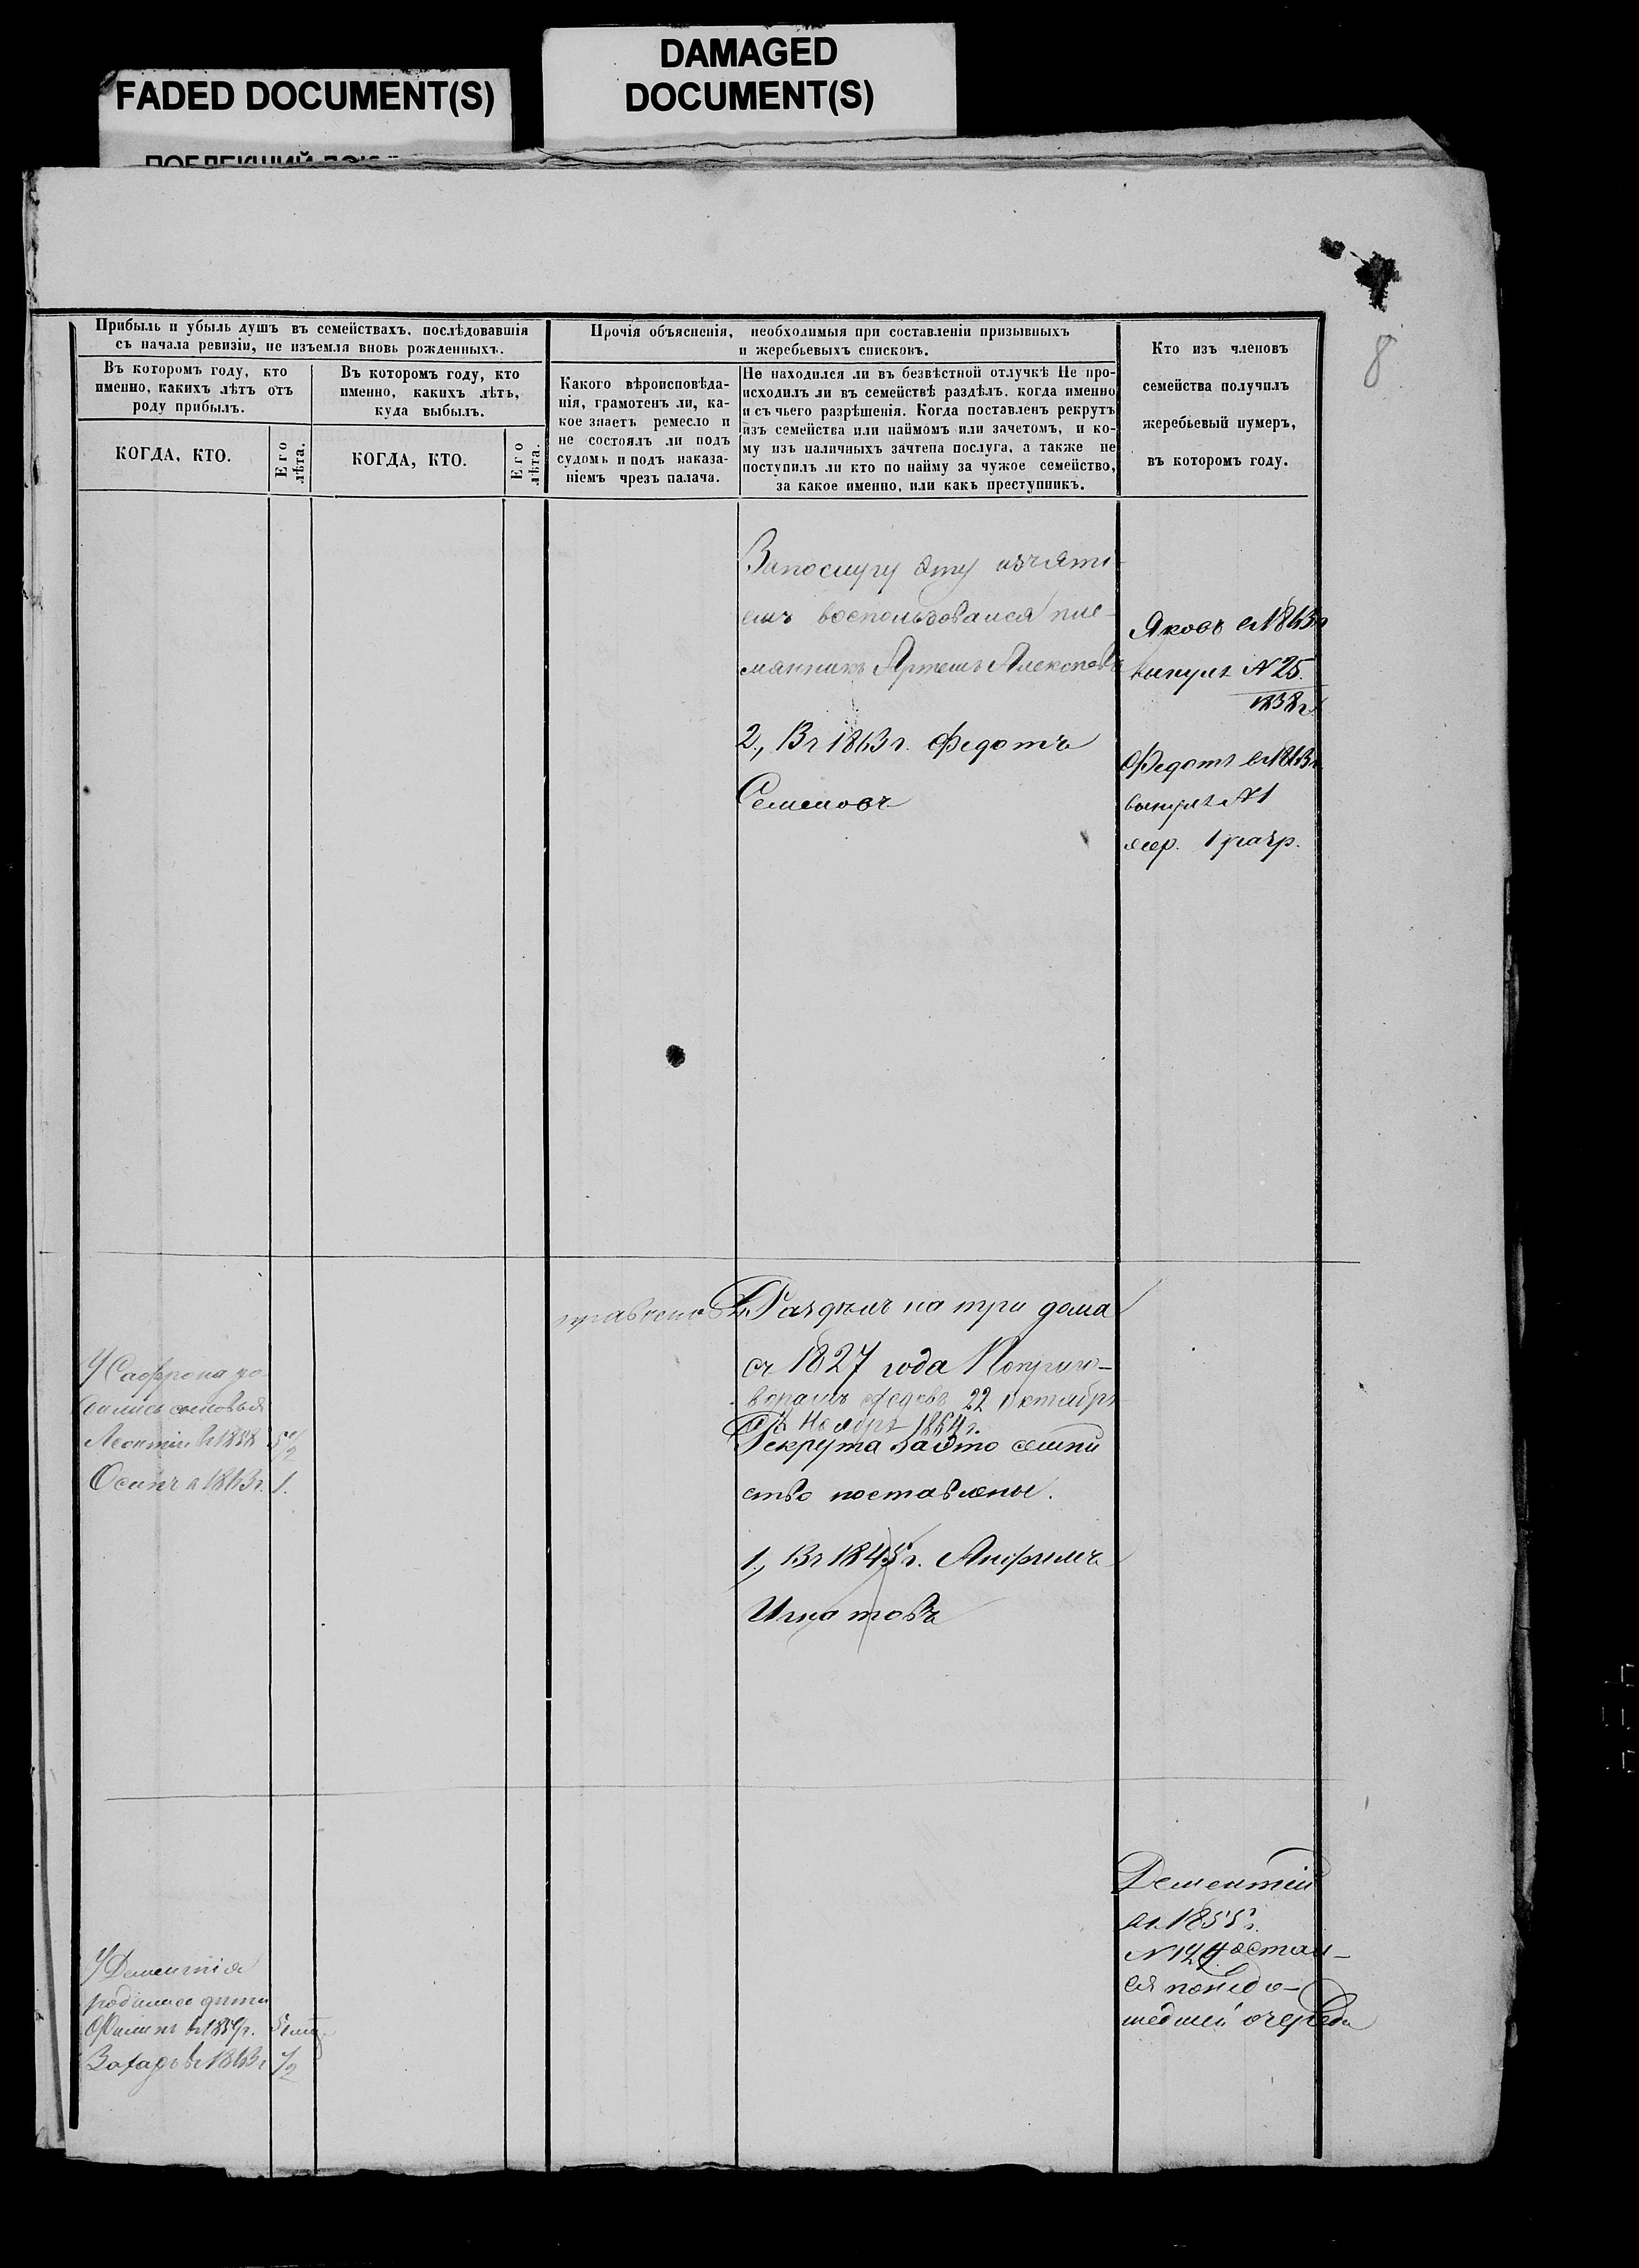 FADED DOCUMENT(S)
DAMAGED
DOCUMENT(S)
8
Прибыль и убыль душъ въ семействахъ, послѣдовавшія
съ начала ревизіи, не изъемля вновь рожденныхъ.
Въ которомъ году, кто
именно, какихъ лѣтъ отъ
роду прибылъ.
КОГДА, КТО.
Его
лѣта.
Въ которомъ году, кто
именно, какихъ лѣтъ,
куда выбылъ.
КОГДА, КТО.
Его
лѣта.
Прочія объясненія, необходимыя при составленіи призывныхъ
и жеребьевыхъ списковъ.
Какого вѣроисповѣда-
нія, грамотенъ ли, ка-
кое знаетъ ремесло и
не состоялъ ли подъ
судомъ и подъ наказа-
ніемъ чрезъ палача.
Не находился ли въ безвѣстной отлучкѣ Не про-
исходилъ ли въ семействѣ раздѣлъ, когда именно
и съ чьего разрѣшенія. Когда поставленъ рекрутъ
изъ семейства или наймомъ или зачетомъ, и ко-
му изъ наличныхъ зачтена послуга, а также не
поступилъ ли кто по найму за чужое семейство,
за какое именно, или какъ преступникъ.
Кто изъ членовъ
семейства получилъ
жеребьевый нумеръ,
въ которомъ году.
Запослугу эту
воспользовался пле-
мянникъ Артемъ
2., Въ 1863 г. Федотъ
Семеновъ
Яковъ въ 1863 г
вынулъ № 25.
1838 г.
Федотъ въ 1863 г.
вынулъ № 1
жер. 1 разр.
Раздѣлъ на три дома
съ 1827 года
22 Октября
Ноября 1864 г.
Рекрута за это семей
ство поставлены.
1., Въ 1845 г. Анфимъ
Игнатовъ
У Сафрона ро
дились сыновья
Леонтій въ 1858
Осипъ въ 1863 г. 1.
Дементій
въ 1855 г.
№ 124 остал-
ся понедо-
шедшей очереди
У Дементія
родились дѣти
Филипъ въ 1859 г.
Захаръ въ 1863 г 1/2